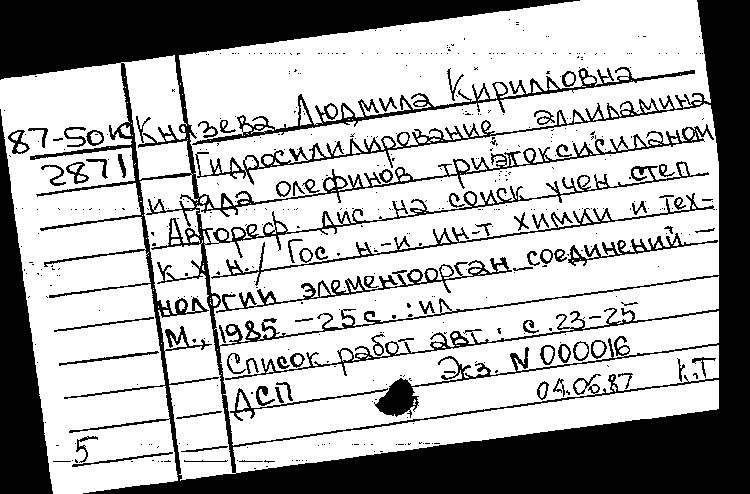 87-50к Князева, Людмила Кирилловна
2871 Гидросилилирование аллиламина
и ряда олефинов триэтоксисиланом
: Автореф. дис. на соиск учен. степ
к.х.н. / Гос. н.-и. ин-т химии и тех=
нологии элементоорган. соединений. –
М., 1985. – 25 с. : ил.
Список работ авт.: с. 23-25
ДСП Экз. N 000016
04.06.87 К.Т
5